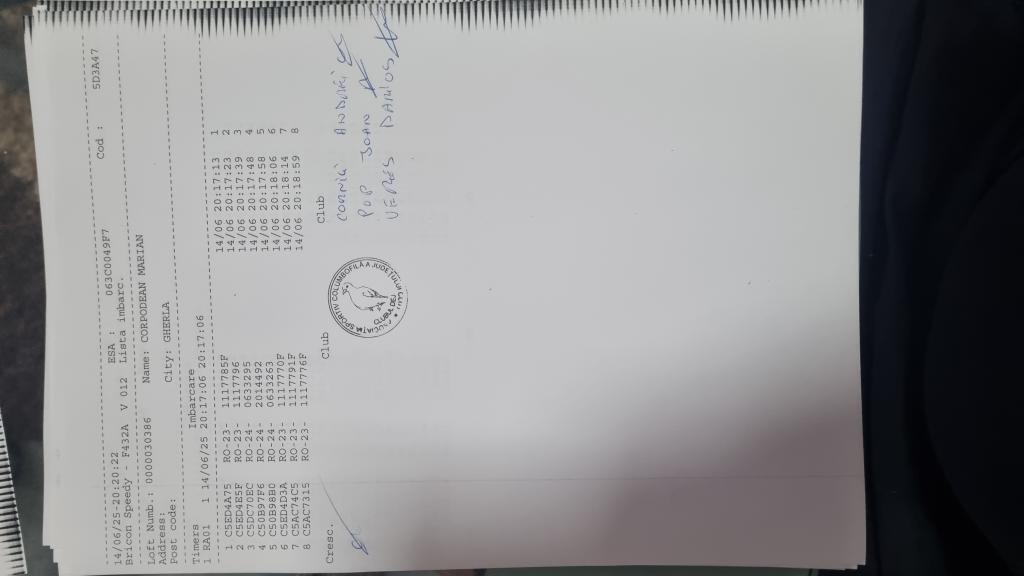 14/06/25-20:20:22 ESA : 063C0049F7 Cod : 5D3A47
Bricon Speedy - F432A V 012 Lista imbarc.
Loft Numb.: 0000030386 Name: CORPODEAN MARIAN
Address:
Post code: City: GHERLA
Timers Imbarcare
1 RA01 1 14/06/25 20:17:06 20:17:06
1 C5ED4A75 RO-23- 1117785F 14/06 20:17:13 1
2 C5ED4E5F RO-23- 1117796 14/06 20:17:23 2
3 C5DC70EC RO-24- 0633295 14/06 20:17:39 3
4 C50B97F6 RO-24- 2014492 14/06 20:17:48 4
5 C50B98B0 RO-24- 0633263 14/06 20:17:58 5
6 C5ED4D3A RO-23- 1117770F 14/06 20:18:06 6
7 C5AC74C5 RO-23- 1117791F 14/06 20:18:14 7
8 C5AC7315 RO-23- 1117776F 14/06 20:18:59 8
Cresc. Club Club
ANDREI
POP IOAN
VEREȘ DARIUS
ASOCIAȚIA SPORTIV COLUMBOFILĂ A JUDEȚULUI CLUJ
CLUBUL DEJ